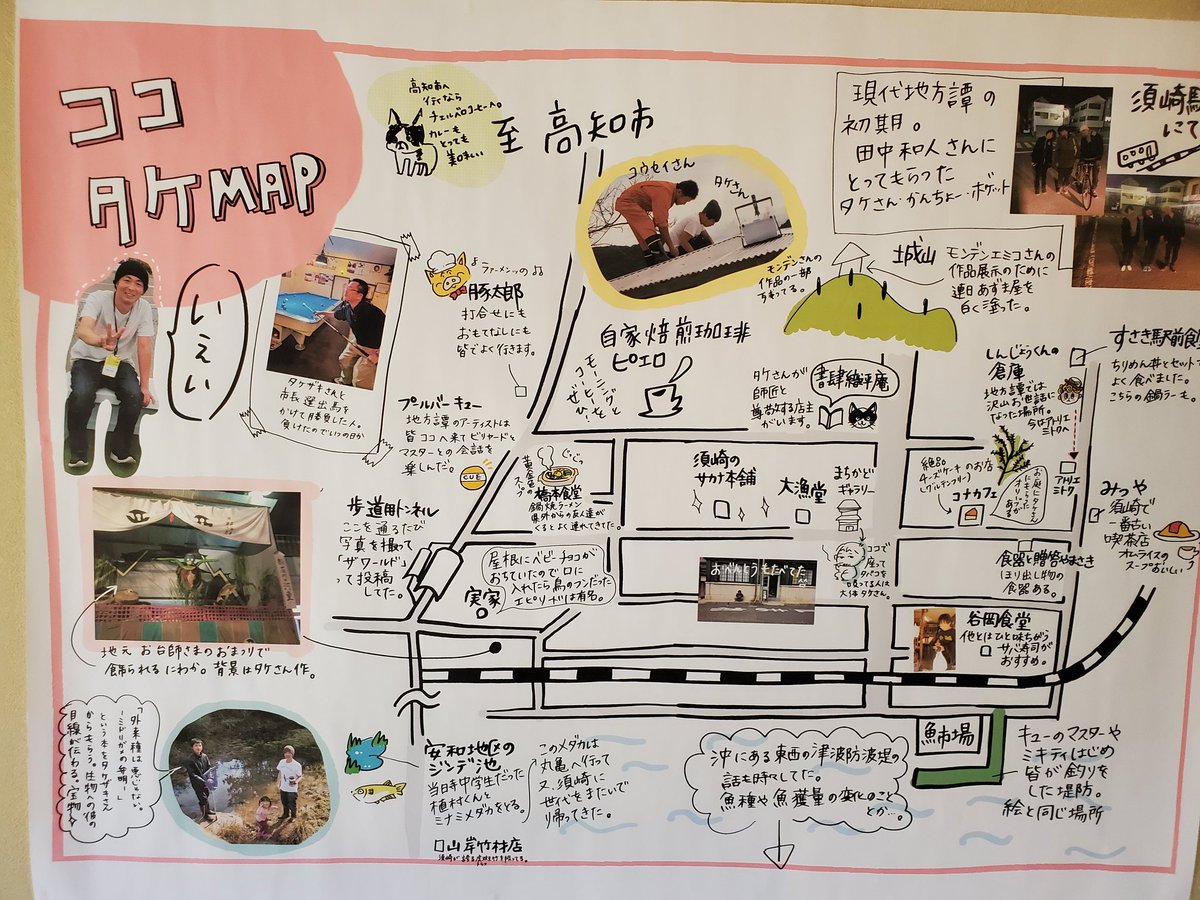 ココ
タケMAP
いぇい
高知市へ
行くなら
チェルベロコーヒーへ。
カレーも
とっても
美味しい
至 高知市
コウセイさん
タケさん
モンデンさんの
作品の一部
現代地方譚の
初期。
田中和人さんに
とってもらった
タケさん・かんちょー・ボゲット
須崎駅
にて
城山
モンデンエミコさんの
作品展示のために
連日あずま屋を
白く塗った。
タケザキさんと
市長選出馬を
かけて勝負した人。
負けたのでいつの日か
ファーメンッの
豚太郎
打合せにも
おもてなしにも
皆でよく行きます。
自家焙煎珈琲
ピエロ
モーニング
タケさんが
師匠と
尊敬する店主
がいます。
書肆織平庵
しんじょうくんの
倉庫
地方譚では
沢山お世話に
なった場所。
今はアトリエ
ミトクへ
すさき駅前食
ちりめん丼とセットで
よく食べました。
こちらの鍋ラーも。
プールバーキュー
地方譚のアーティストは
皆ココへ来てビリヤードと
マスターとの会話を
楽しんだ。
CUE
黄金の
スープ
じゅっ
橋本食堂
鍋焼ラーメン
県外からの友人達が
くるとよく連れてきた。
須崎の
サカナ本舗
大漁堂
まちかど
ギャラリー
ココで
座って
タバコを
吸ってる人は
大体タケさん。
絶品
チーズケーキのお店
(グルテンフリー)
コナカフェ
お庭にタケさん
にもらった
オリーブが
アトリエ
ミトク
みつや
須崎で
一番古い
喫茶店
オムライスの
スープはおいしい
歩道用トンネル
ここを通るたび
写真を撮って
「ザワールド」
って投稿
してた。
屋根にベビーチョコが
おちていたので口に
入れたら鳥のフンだった
エピソードは有名。
実家
おべんとうもたべてた
食器と贈答やまさき
ほり出し物の
食器ある。
谷岡食堂
他とはひと味ちがう
サバ寿司が
おすすめ。
地元 お台師さまのおまつりで
飾られるにわか。背景はタケさん作。
「外来種は悪じゃない
ーミドリガメの弁明ー」
という本をタケザキさん
からもらう。生物への彼の
目線が伝わる。宝物☆
安和地区の
ジンデ池
当日寺中学生だった
植村くんと
ミナミメダカをとる。
口山岸竹材店
このメダカは
丸亀へ行って
又、須崎に
世代をまたいで
帰ってきた。
沖にある東西の津波防波堤の
話も時々してた。
魚種や魚獲量の変化のこと
とか…。
魚市場
キューのマスターや
ミキティはじめ
皆が釣りを
した堤防。
絵と同じ場所